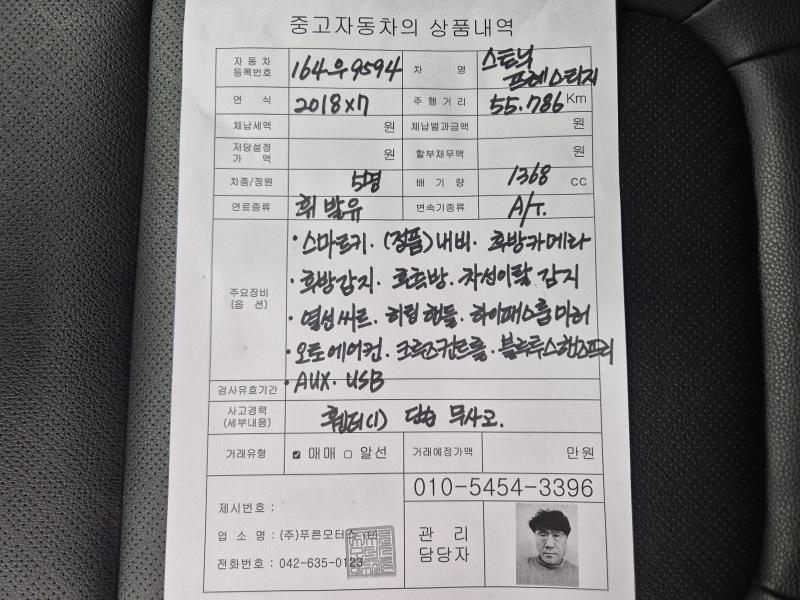 중고자동차의 상품내역
자동차 등록번호 164우9594 차 명 스토닉 프레스티지
연 식 2018x7 주행거리 55.786 Km
체납세액 원 체납벌과금액 원
저당설정 가 액 원 할부채무액 원
차종/정원 5명 배 기 량 1368 cc
연료종류 휘발유 변속기종류 A/T.
주요장비 (옵 션)
·스마트키. (정품)내비. 후방카메라
·후방감지. 차선이탈 감지
·열선씨트. 히팅핸들. 하이패스룸미러
·오토에어컨. 크루즈컨트롤. 블루투스핸즈프리
·AUX. USB
검사유효기간
사고경력 (세부내용) 휀더(1) 단순 무사고.
거래유형 ☑ 매매 □ 알선 거래예정가액 만원
010-5454-3396
제시번호 :
업 소 명 : (주)푸른모터스 (인)
전화번호 : 042-635-0123
관 리 담당자